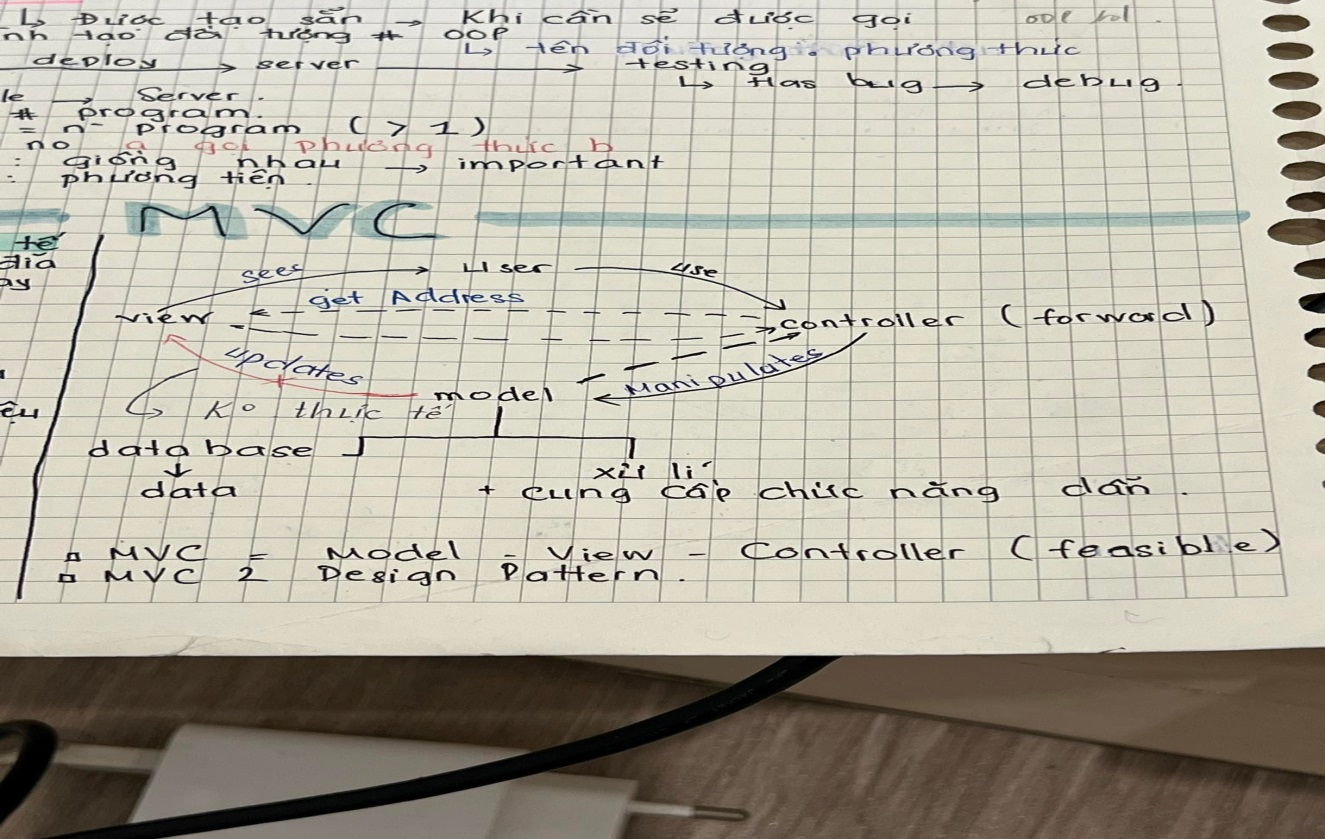 ↳ Được tạo sẵn → Khi cần sẽ được gọi
tạo đối tượng ≠ OOP
↳ tên đối tượng. phương thức
deploy → server → testing
↳ Has bug → debug.
→ Server.
≠ program.
= n program ( > 1 )
no a gọi phương thức b
: giống nhau → important
: phương tiện.
MVC
tế
sees → User use
get Address
view controller (forward)
updates Manipulates
model
Ko thực tế
database
xử lí
↓
data + cung cấp chức năng dẫn.
▫ MVC = Model - View - Controller (feasible)
▫ MVC 2 Design Pattern.